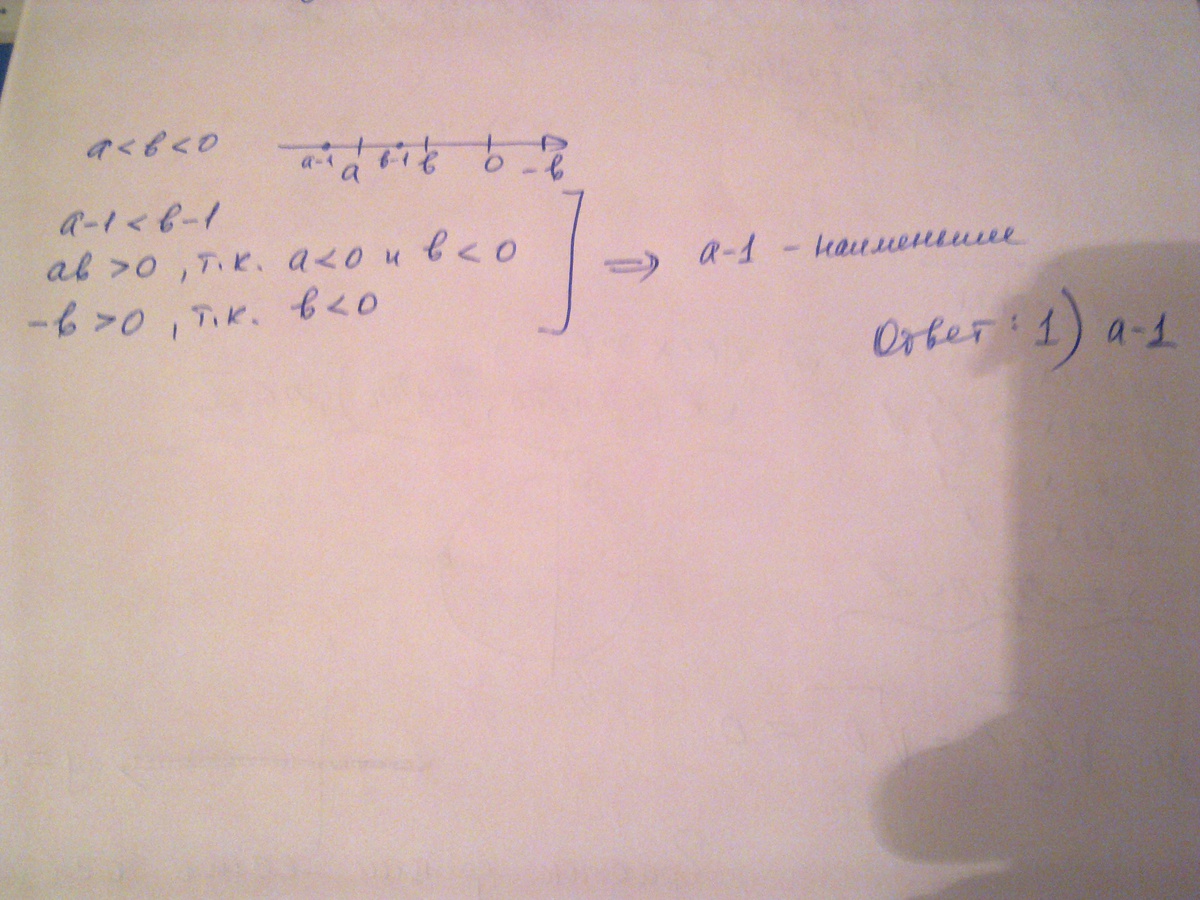 а<в<0
а-1 а в-1 в 0 -в
а-1<в-1
ав>0, т.к. а<0 и в<0
-в>0, т.к. в<0
⇒ а-1 - наименьшее
Ответ: 1) а-1